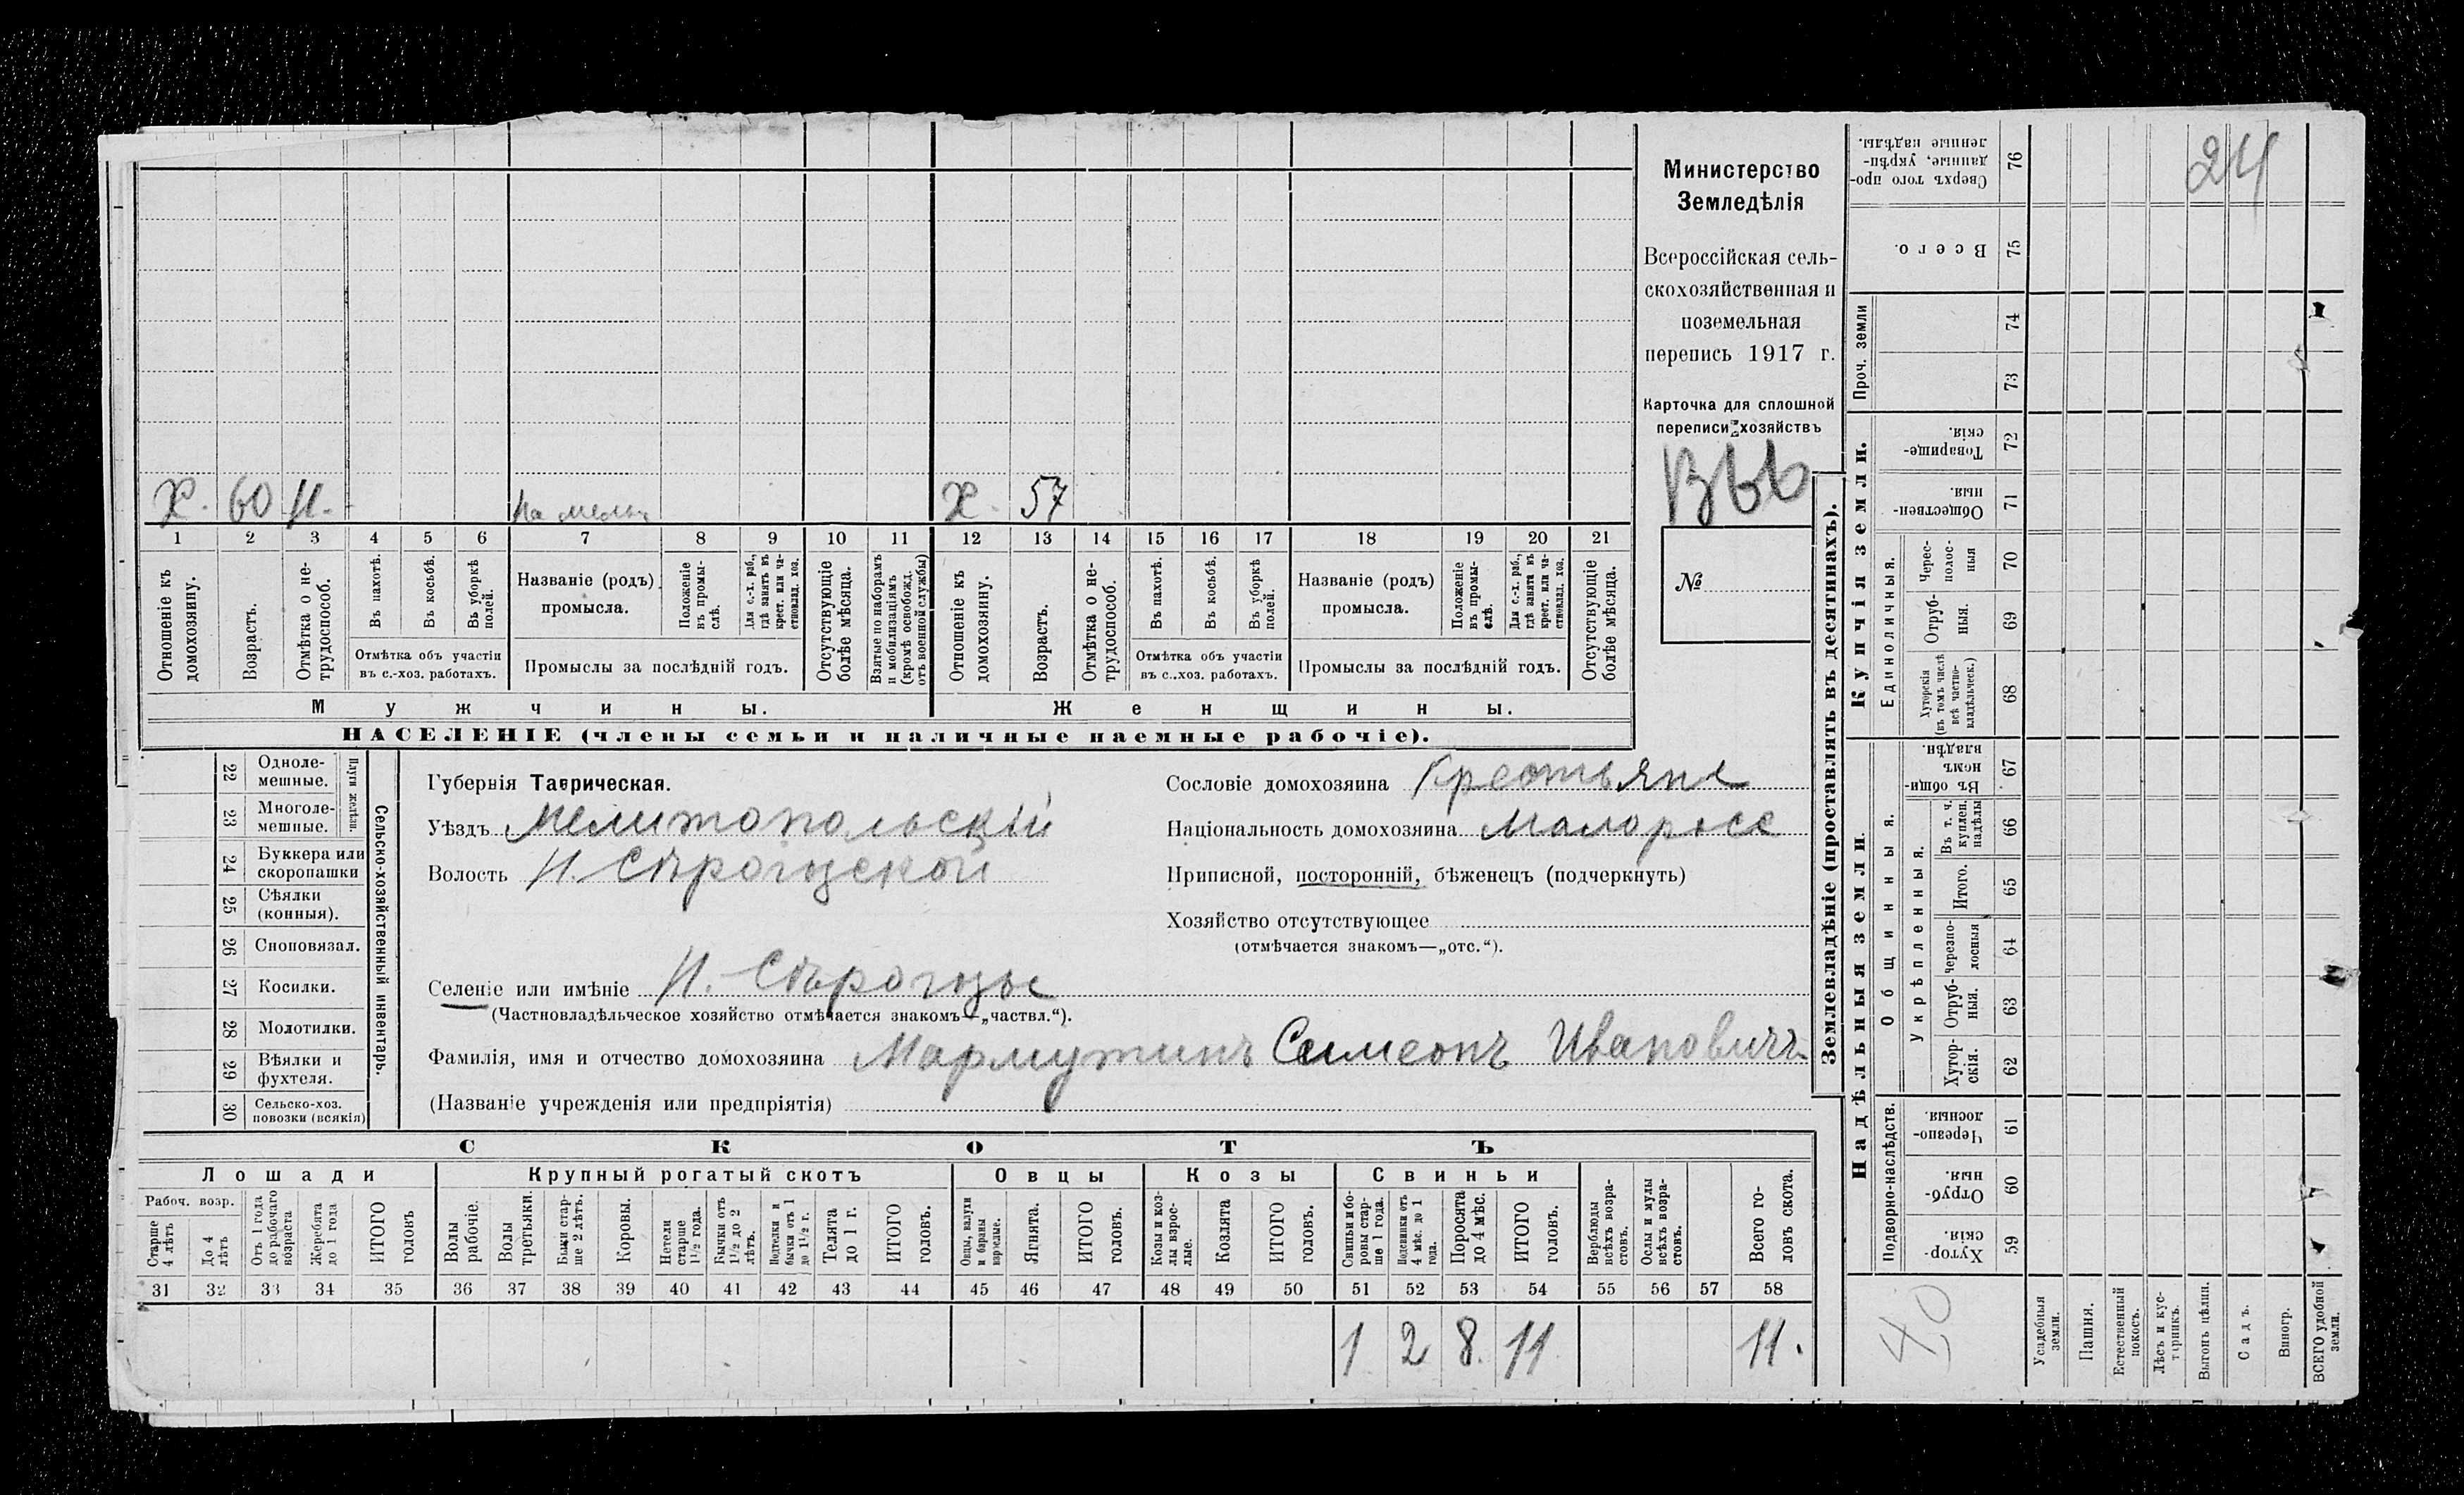 Х. 60 Н. На мельн Х. 57
1 2 3 4 5 6 7 8 9 10 11 12 13 14 15 16 17 18 19 20 21
Отношеніе къ домохозяину.
Возрастъ.
Отмѣтка о не-трудоспособ.
Въ пахотѣ.
Въ косьбѣ.
Въ уборкѣ полей.
Отмѣтка объ участіи
въ с.-хоз. работахъ.
Названіе (родъ)
промысла.
Положеніе въ промы-слѣ.
Для с.-х. раб., гдѣ занятъ въ крест. или ча-стновлад. хоз.
Промыслы за послѣдній годъ.
Отсутствующіе болѣе мѣсяца.
Взятые по наборамъ и мобилизаціямъ (кромѣ освобожд. отъ военной службы)
Отношеніе къ домохозяину.
Возрастъ.
Отмѣтка о не-трудоспособ.
Въ пахотѣ.
Въ косьбѣ.
Въ уборкѣ полей.
Отмѣтка объ участіи
въ с..хоз. работахъ.
Названіе (родъ)
промысла.
Положеніе въ промы-слѣ.
Для с.-х. раб., гдѣ занята въ крест. или ча-стновлад. хоз.
Промыслы за послѣдній годъ.
Отсутствующіе болѣе мѣсяца.
Мужчины. Женщины.
НАСЕЛЕНІЕ (члены семьи и наличные наемные рабочіе).
Министерство
Земледѣлія
Всероссійская сель-
скохозяйственная и
поземельная
перепись 1917 г.
Карточка для сплошной
переписи хозяйствъ
№
22 Одноле-мешные.
23 Многоле-мешные.
Плуги желѣзн.
24 Буккера или скоропашки
25 Сѣялки (конныя).
26 Сноповязал.
27 Косилки.
28 Молотилки.
29 Вѣялки и фухтеля.
30 Сельско-хоз. повозки (всякія)
Сельско-хозяйственный инвентарь.
Губернія Таврическая.
Уѣздъ Мелитопольскій
Волость Н. Сѣрогозской
Селеніе или имѣніе Н. Сѣрогозы
(Частновладѣльческое хозяйство отмѣчается знакомъ—„частвл.“).
Фамилія, имя и отчество домохозяина Мармутинъ Симеонъ Ивановичъ
(Названіе учрежденія или предпріятія)
Сословіе домохозяина Крестьяне
Національность домохозяина Малоросс
Приписной, посторонній, бѣженецъ (подчеркнуть)
Хозяйство отсутствующее
(отмѣчается знакомъ—„отс.“).
СКОТЪ
Лошади Крупный рогатый скотъ Овцы Козы Свиньи
Рабоч. возр.
Старше 4 лѣтъ
До 4 лѣтъ
Отъ 1 года до рабочаго возраста
Жеребята до 1 года
ИТОГО головъ
Волы рабочіе.
Волы третьяки.
Быки стар-ше 2 лѣтъ.
Коровы.
Нетели старше 1½ года.
Бычки отъ 1½ до 2 лѣтъ.
Подтелки и бычки отъ 1 до 1½ г.
Телята до 1 г.
ИТОГО головъ.
Овцы, валухи и бараны взрослые.
Ягнята.
ИТОГО головъ.
Козы и коз-лы взрос-лые.
Козлята
ИТОГО головъ.
Свиньи и бо-ровы стар-ше 1 года.
Подсвинки отъ 4 мѣс. до 1 года.
Поросята до 4 мѣс.
ИТОГО головъ.
Верблюды всѣхъ возра-стовъ.
Ослы и мулы всѣхъ возра-стовъ.
Всего го-ловъ скота.
31 32 33 34 35 36 37 38 39 40 41 42 43 44 45 46 47 48 49 50 51 52 53 54 55 56 57 58
1 2 8. 11 11.
Землевладѣніе (проставлять въ десятинахъ).
Купчія земли.
Надѣльныя земли.
Сверхъ того про-данные, укрѣп-ленные надѣлы. 76
Всего. 75
Проч. земли 74
73
Товарище-скія. 72
Обществен-ныя. 71
Единоличныя.
Черес-полос-ныя 70
Отруб-ныя. 69
Хуторскія (въ томъ числѣ всѣ частно-владѣльческ.) 68
Общинныя.
Въ общи-номъ владѣн. 67
Укрѣпленныя.
Въ т. ч. куплен. надѣлы 66
Итого. 65
черезпо-лосныя 64
Отруб-ныя. 63
Хутор-скія. 62
Подворно-наслѣдств.
Черезпо-лосныя. 61
Отруб-ныя. 60
Хутор-скія. 59
Усадебныя земли.
Пашня.
Естественный покосъ.
Лѣсъ и кус-тарникъ.
Выгонъ цѣлин.
Садъ.
Виногр.
ВСЕГО удобной земли.
24